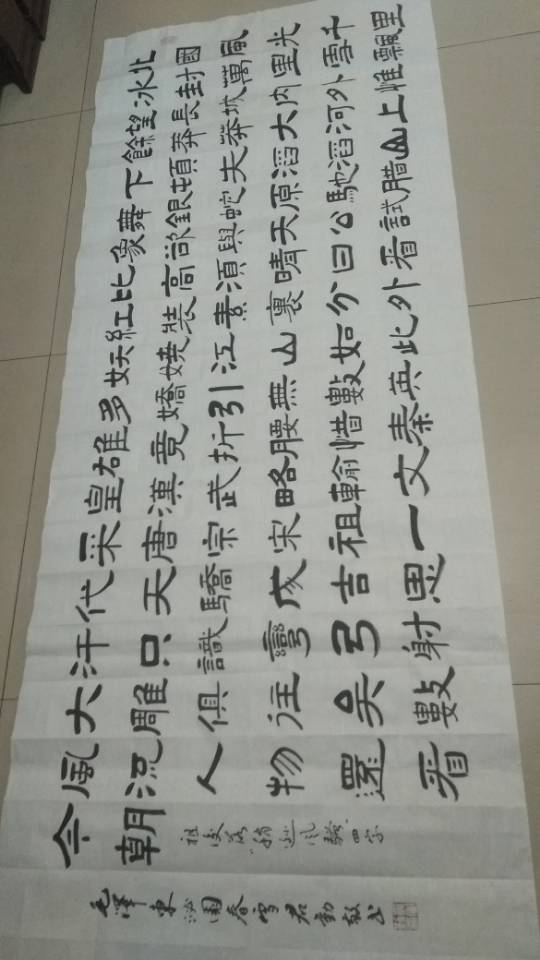 北國風光千里
冰封萬里雪飄
望長城內外惟
餘莽莽大河上
下頓失滔滔山
舞銀蛇原馳臘
象欲與天公試
比高須晴日看
紅裝素裹分外
妖嬈江山如此
多嬌引無數英
雄竟折腰惜秦
皇漢武略輸文
采唐宗宋祖一
代天驕成吉思
汗只識彎弓射
大雕俱往矣數
風流人物還看
今朝
祖後落稍遜風騷四字
毛澤東沁園春雪君勤敬书